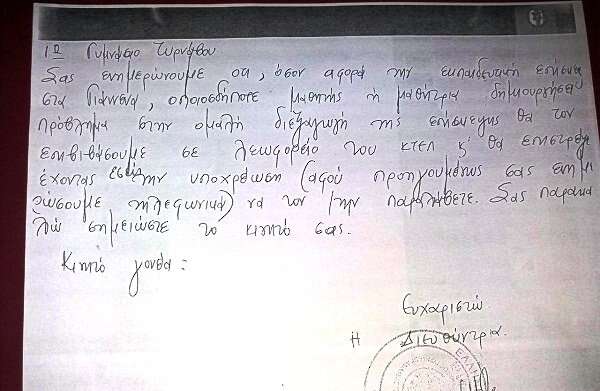 1ο Γυμνάσιο Τυρνάβου
Σας ενημερώνουμε οτι, όσον αφορά την εκπαιδευτική επίσκεψη
στα Γιάννενα, οποιοσδήποτε μαθητής ή μαθήτρια δημιουργήσει
πρόβλημα στην ομαλή διεξαγωγή της επίσκεψης θα τον
επιβιβάσουμε σε λεωφορείο του κτελ κ' θα επιστρέψει
έχοντας εσείς την υποχρέωση (αφού προηγουμένως σας ενημε
ρώσουμε τηλεφωνικά) να τον/την παραλάβετε. Σας παρακα
λώ σημειώστε το κινητό σας.
Κινητό γονέα:
Ευχαριστώ
Η Διευθύντρια.